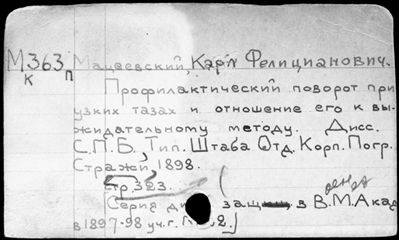 М363 Мацеевский, Карл Фелицианович.
К п
Профилактический поворот при
узких тазах и отношение его к вы-
жидательному методу. Дисс.
С.П.Б., Тип. Штаба Отд. Корп. Погр.
Стражи, 1898.
Стр. 323.
(Серия защ в В.М.Акад
в 1897-98 уч. г. 2.)